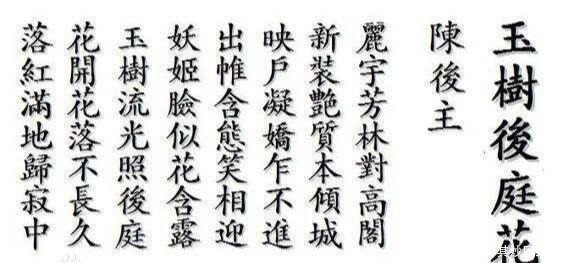 玉樹後庭花
陳後主
麗宇芳林對高閣
新裝艷質本傾城
映戶凝嬌乍不進
出帷含態笑相迎
妖姬臉似花含露
玉樹流光照後庭
花開花落不長久
落紅滿地歸寂中